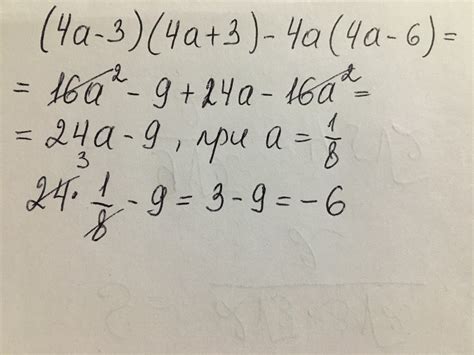 (4a-3)(4a+3)-4a(4a-6)=
= 16a² - 9 + 24a - 16a² =
= 24a - 9, при a = 1/8
24 · 1/8 - 9 = 3 - 9 = -6